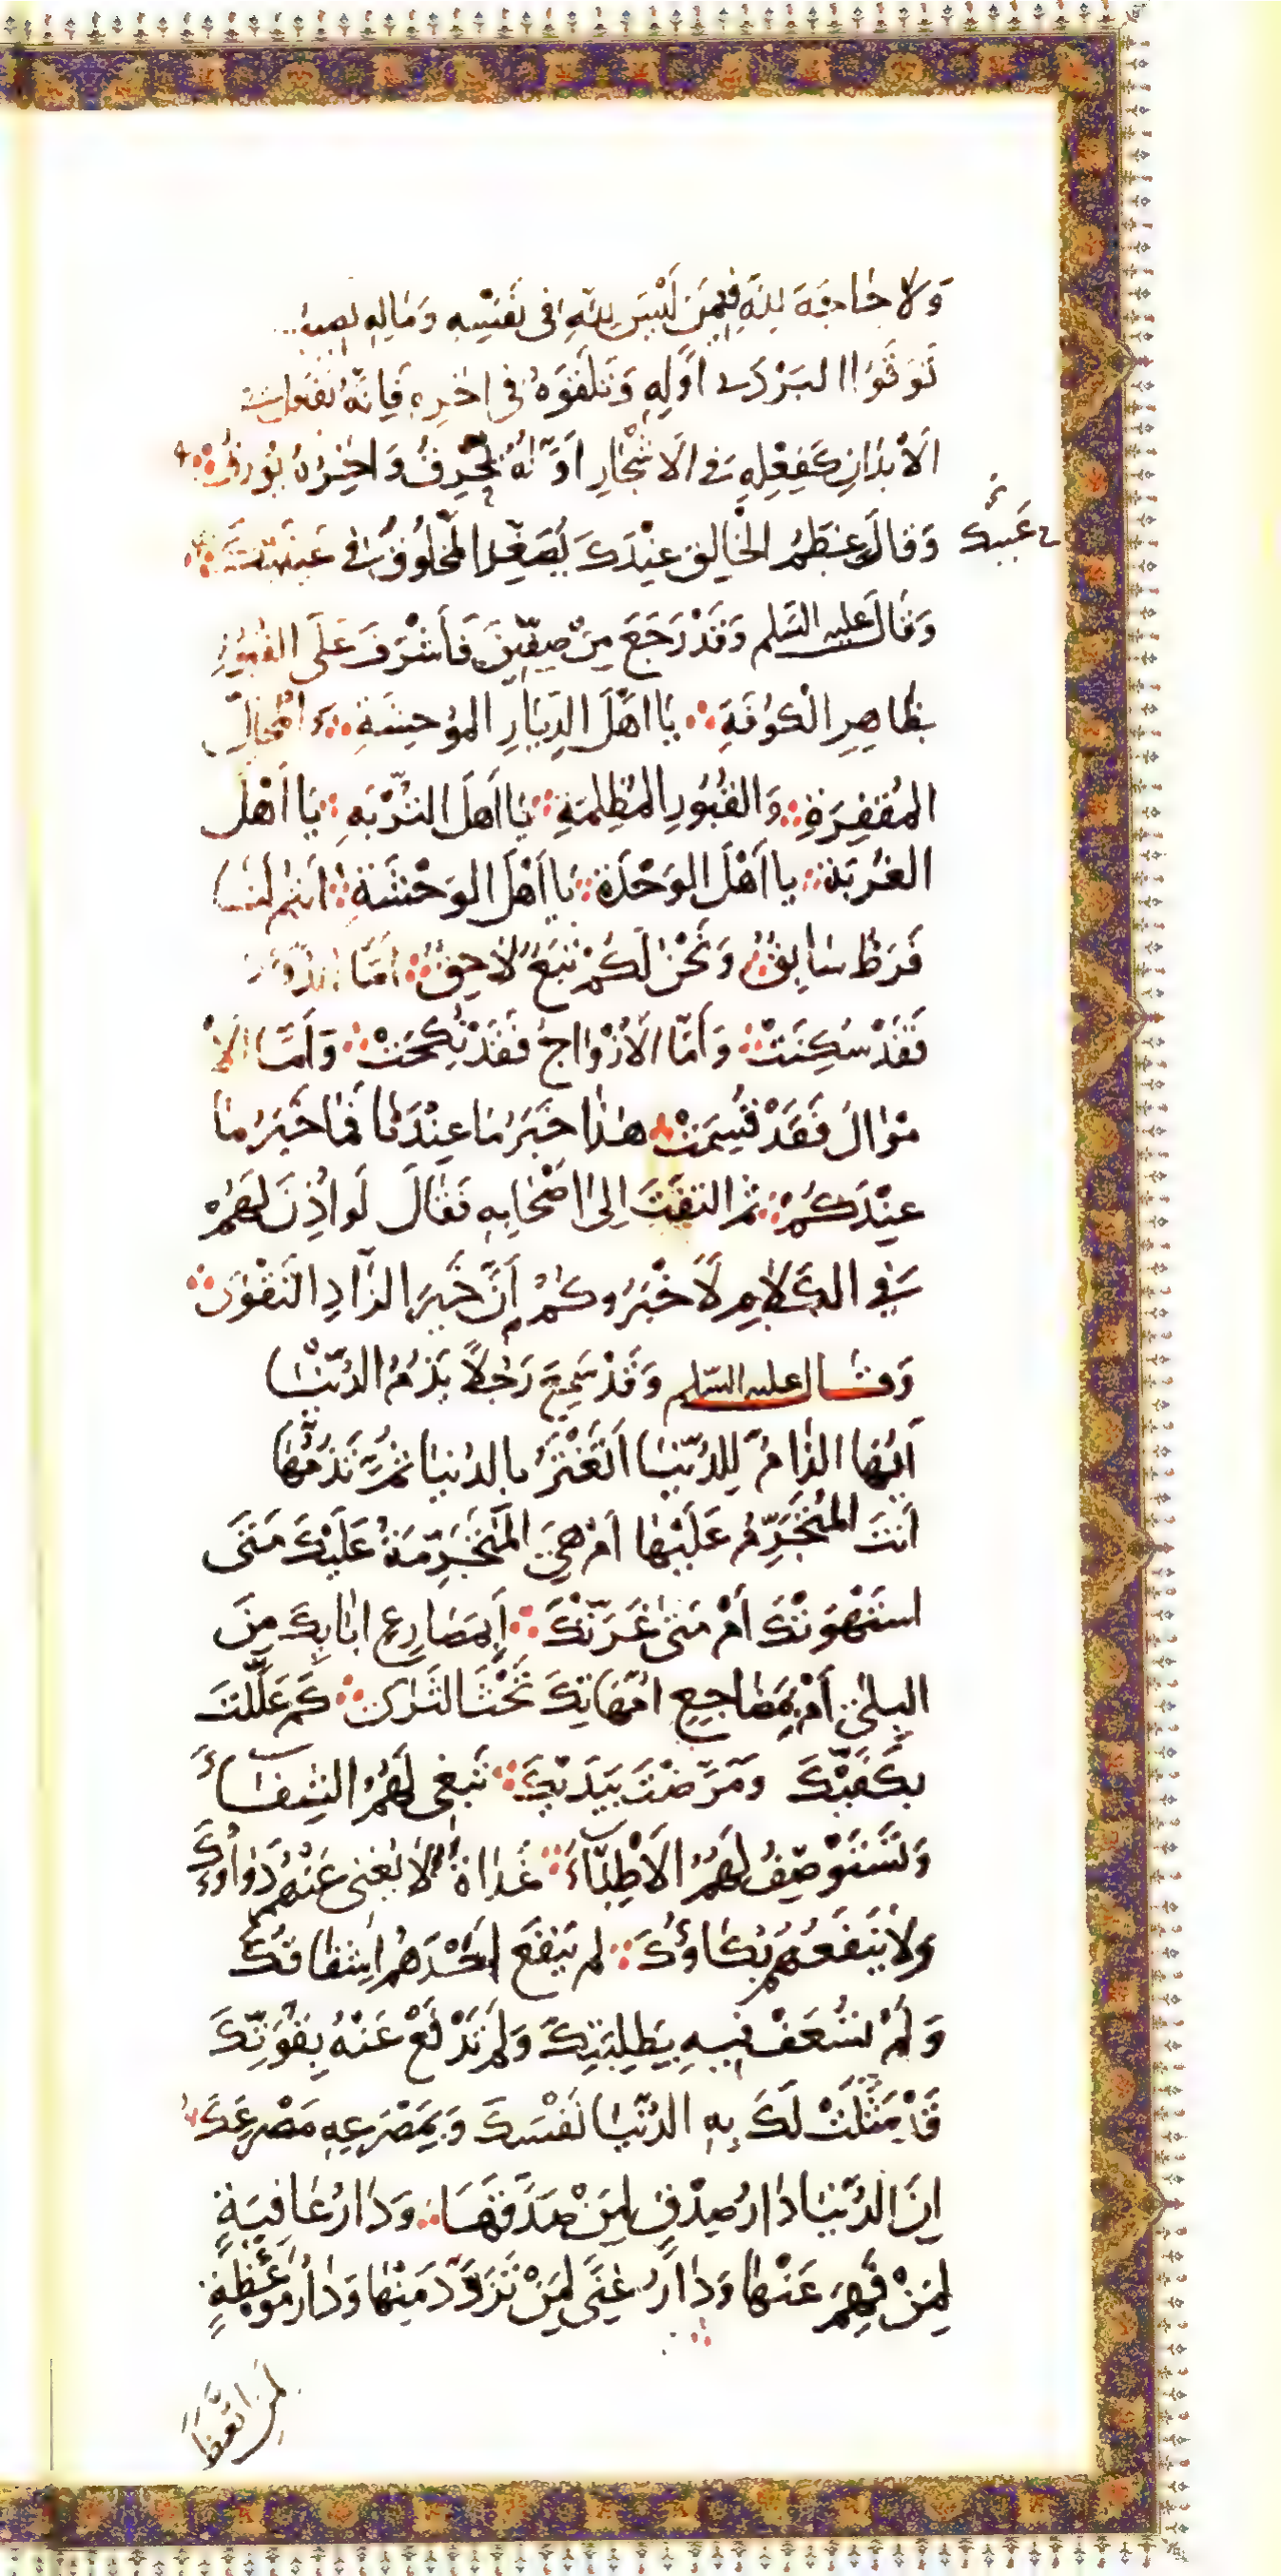 وَلا حٰاجَةَ لِلّٰهِ فِيمَن لَيْسَ لِلّٰهِ فى نَفْسِه وَمٰالِهِ نصيب
تَوَقَّوُا البَرْدَ فى اَوَّلِهِ وَتَلَقَّوهُ فى اٰخرِهِ فَاِنَّهُ يَفْعَلُ فى
الاَبْدَانِ كَفِعْلِهِ فى الاَشْجٰارِ اَوَّلُهُ يُحْرِقُ وَاٰخِرُهُ يُورِقُ
وَقالَ عِظَمُ الْخٰالِقِ عِنْدَكَ يُصَغِّرُ الْمَخْلُوقَ فى عَيْنَيْكَ
عَيْنِكَ
وَقٰالَ عليه السّلم وَقَدْ رَجَعَ مِنْ صِفّينَ فَأَشْرَفَ عَلَى القُبُورِ
بِظٰاهِرِ الْكُوفَةِ يٰا اَهْلَ الدِّيٰارِ الْمُوحِشَةِ وَالْمَحٰالِّ
المُقْفِرَةِ وَالقُبُورِ المُظْلِمَةِ يٰا اَهلَ التُّرْبَةِ يٰا اَهْلَ
الغُرْبَةِ يا اَهْلَ الوَحْدَةِ يٰا اَهْلَ الوَحْشَةِ اَنتم لَنٰا
فَرَطٌ سٰابِقٌ وَنَحْنُ لَكُمْ تَبَعٌ لاٰحِقٌ اَمّا الدُّورُ
فَقَدْ سُكِنَتْ وَاَمّا الاَزْوٰاجُ فَقَدْ نُكِحَتْ وَاَمَّا الاَ
مْوٰالُ فَقَدْ قُسِمَتْ هٰذا خَبَرُ مٰا عِنْدَنٰا فَمٰا خَبَرُ مٰا
عِنْدَكُمْ ثم التفَتَ اِلىٰ اَصْحٰابِهِ فَقٰالَ لَو اُذِنَ لَهُمْ
فِى الكَلاٰمِ لَاَخْبَرُوكُمْ اَنَّ خَيْرَ الزّٰادِ التَقْوٰى
وَقٰال عليه السّلم وَقَدْ سَمِعَ رَجُلاً يَذُمُّ الدُنّيٰا
اَيّهَا الذّٰامُّ لِلدُّنيٰا اَتَغْتَرُّ بالدُنيٰا ثُمَّ تَذُمُّهٰا
اَنتَ المُتَجَرِّمُ عَلَيْهٰا اَمْ هِىَ المُتَجَرِّمَةُ عَلَيْكَ مَتَى
استَهْوَتْكَ اَمْ مَتىٰ غَرَّتْكَ اَبِمَصٰارِعِ اٰبٰائِكَ مِنَ
البِلىٰ اَمْ بِمَضٰاجِعِ اُمَّهَاتِكَ تَحْتَ الثَرىٰ كَم عَلَّلتَ
بِكَفَّيْكَ وَمَرَّضْتَ بِيَدَيْكَ تَبغى لَهُمُ الشِفٰآءَ
وَتَسْتَوْصِفُ لَهُمُ الاَطِبّآءَ غَدٰاةَ لاٰ يُغنى عَنْهُم دَوٰاؤُكَ
وَلاٰ يَنفَعُهُم بُكٰاؤُكَ لم يَنفَعْ اَحَدَهُم اِشفٰاقُكَ
وَلَمْ تُسْعَفْ فيهِ بِطَلِبَتِكَ وَلَمْ تَدْفَعْ عَنْهُ بِقُوَّتِكَ
قَدْ مَثَّلَتْ لَكَ بِهِ الدُنّيٰا نَفْسَكَ وَبِمَصْرَعِهِ مَصْرَعَكَ
اِنَ الدُنّيٰا دٰارُ صِدْقٍ لِمَنْ صَدَقَهٰا وَدٰارُ عٰافِيَةٍ
لِمَنْ فَهِمَ عَنْهٰا وَدٰارُ غِنًى لِمَنْ تَزَوَّدَ مِنْهٰا وَدٰارُ مَوْعِظَةٍ
لمن اتّعظ